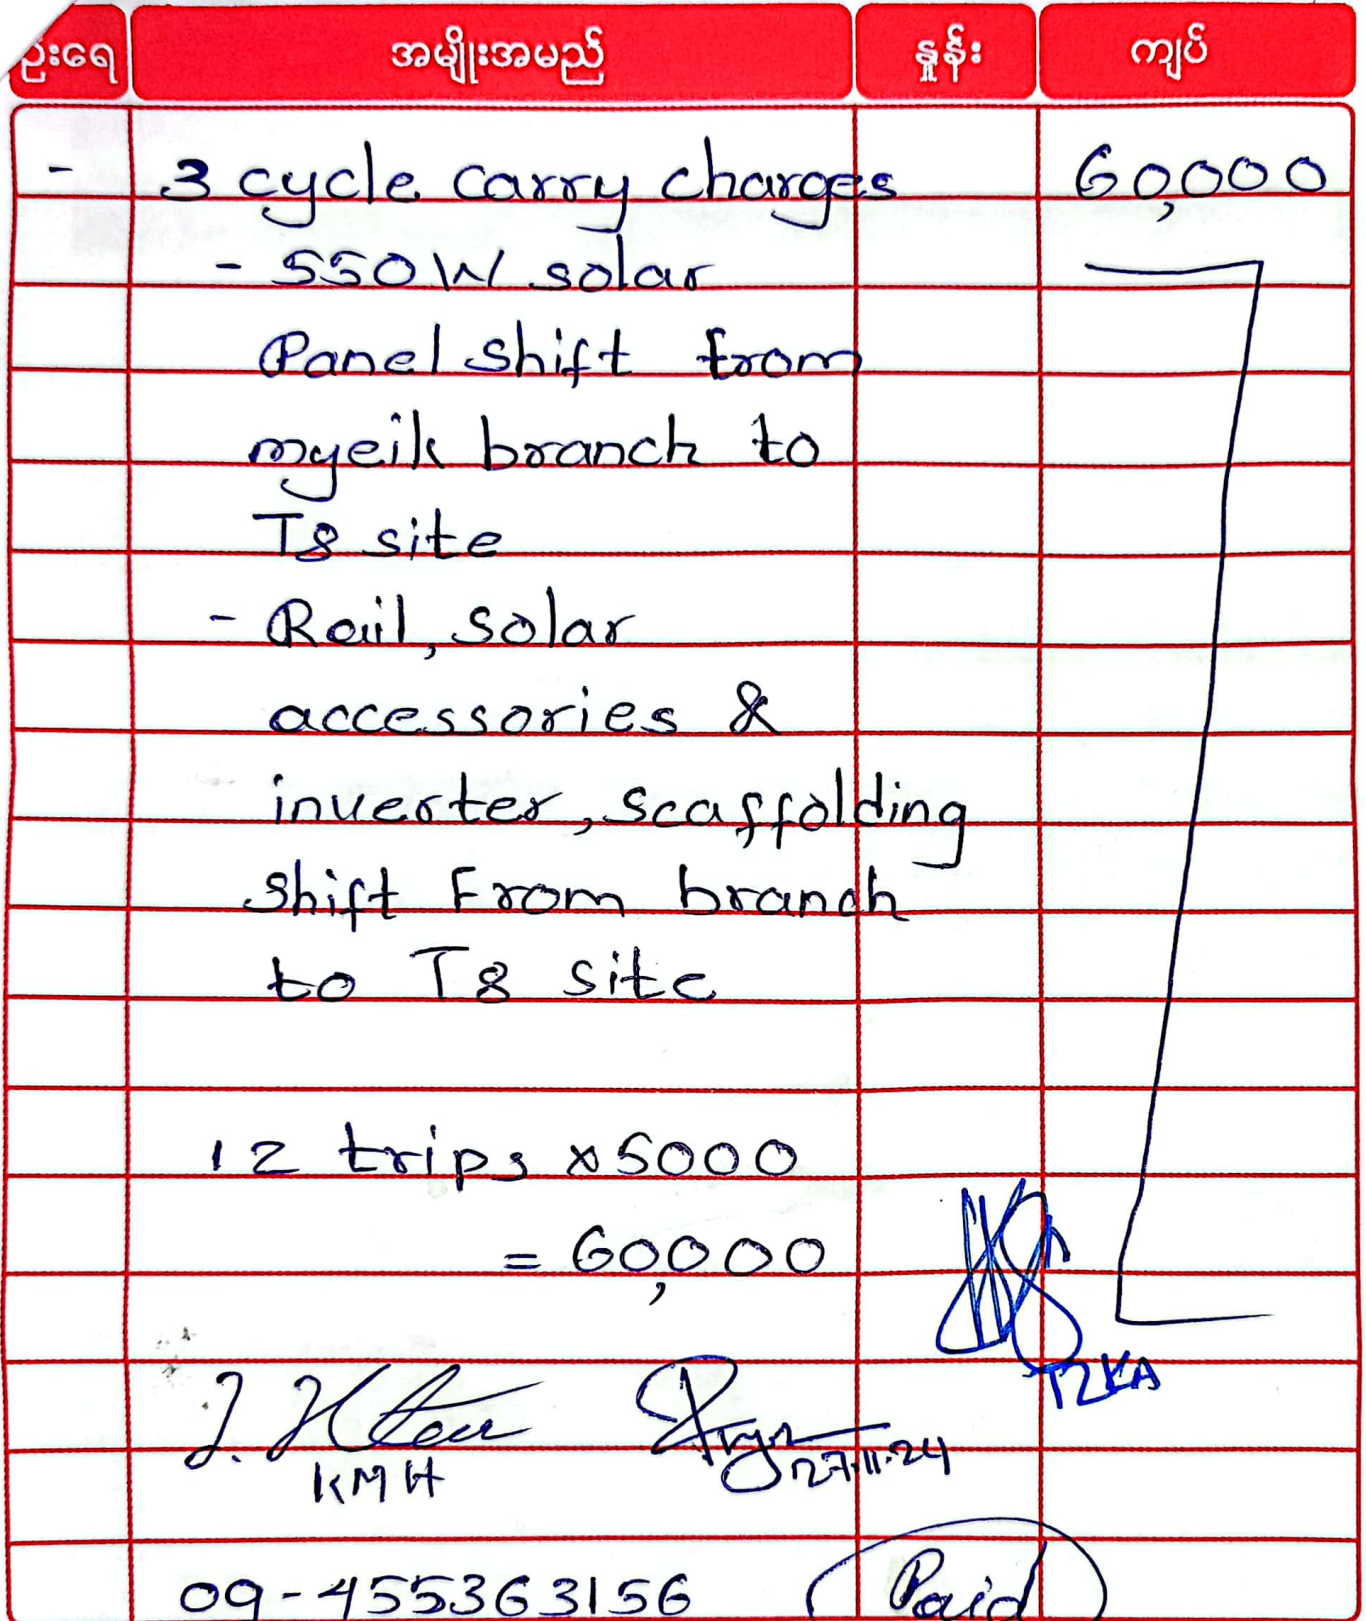 ဦးရေ အမျိုးအမည် နှုန်း ကျပ်
- 3 cycle carry charges 60,000
- 550W solar
Panel shift from
myeik branch to
T8 site
- Rail, solar
accessories &
inverter, scaffolding
shift From branch
to T8 site
12 trips x 5000
= 60,000
TZKA
KMH 27.11.24
09-455363156 Paid